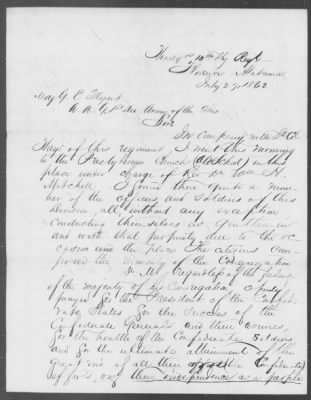 Headqrs 10th Ky Regt
Florence Alabama
July 27 1862
Maj G. E. Flynt
A. A. G. & C. of S. Army of the Ohio
Sir
In Company with Lt Col
Hays of this regiment I went this morning
to the Presbyterian Church (Old School) in this
place under charge of Rev Dr Wm H.
Mitchell I found there quite a num-
ber of the officers and soldiers of this
Division, all without any exception
conducting themselves as gentlemen
and with that propriety due to the oc-
casion and the place The citizens com-
posed the majority of the Congregation
Dr Mitchell regardless of the feelings
of the majority of his Congregation openly
prayed for the President of the Confede-
rate States for the success of the
Confederate Generals and their armies,
for the health of the Confederate Soldiers
and for the ultimate attainment of the
great end of all their (the Confederates)
efforts, viz their independence as a people